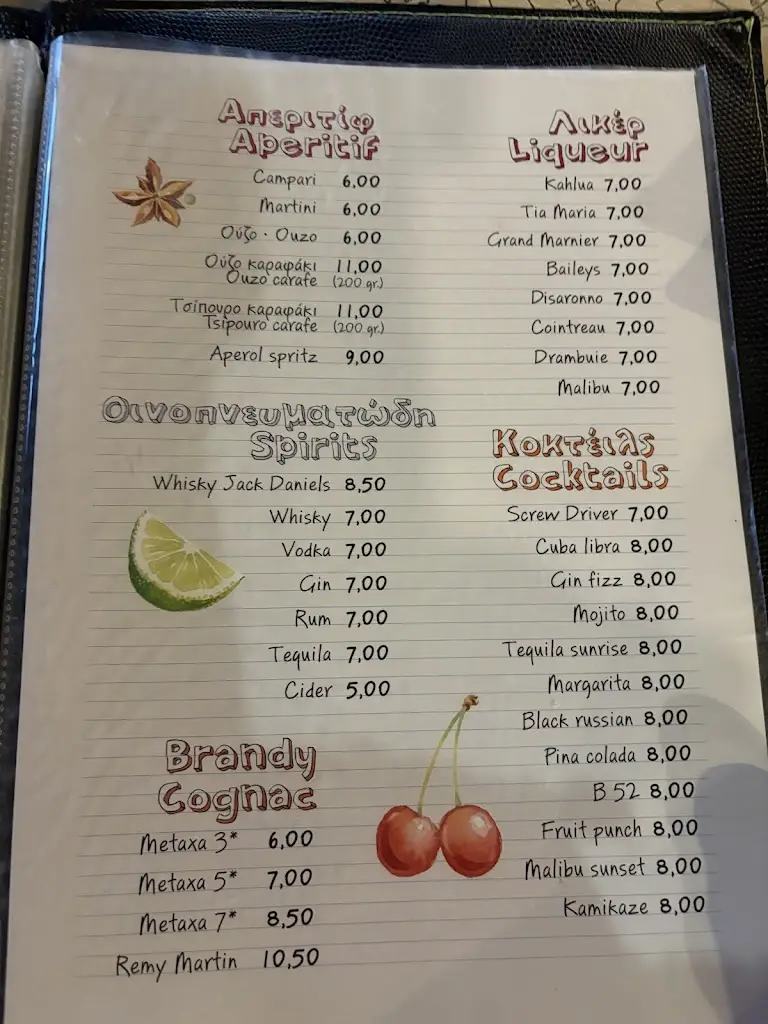 Απεριτίφ
Aperitif
Campari 6,00
Martini 6,00
Ούζο · Ouzo 6,00
Ούζο καραφάκι 11,00
Ouzo carafe (200 gr.)
Τσίπουρο καραφάκι 11,00
Tsipouro carafe (200 gr.)
Aperol spritz 9,00
Οινοπνευματώδη
Spirits
Whisky Jack Daniels 8,50
Whisky 7,00
Vodka 7,00
Gin 7,00
Rum 7,00
Tequila 7,00
Cider 5,00
Brandy
Cognac
Metaxa 3* 6,00
Metaxa 5* 7,00
Metaxa 7* 8,50
Remy Martin 10,50
Λικέρ
Liqueur
Kahlua 7,00
Tia Maria 7,00
Grand Marnier 7,00
Baileys 7,00
Disaronno 7,00
Cointreau 7,00
Drambuie 7,00
Malibu 7,00
Κοκτέιλς
Cocktails
Screw Driver 7,00
Cuba libra 8,00
Gin fizz 8,00
Mojito 8,00
Tequila sunrise 8,00
Margarita 8,00
Black russian 8,00
Pina colada 8,00
B 52 8,00
Fruit punch 8,00
Malibu sunset 8,00
Kamikaze 8,00